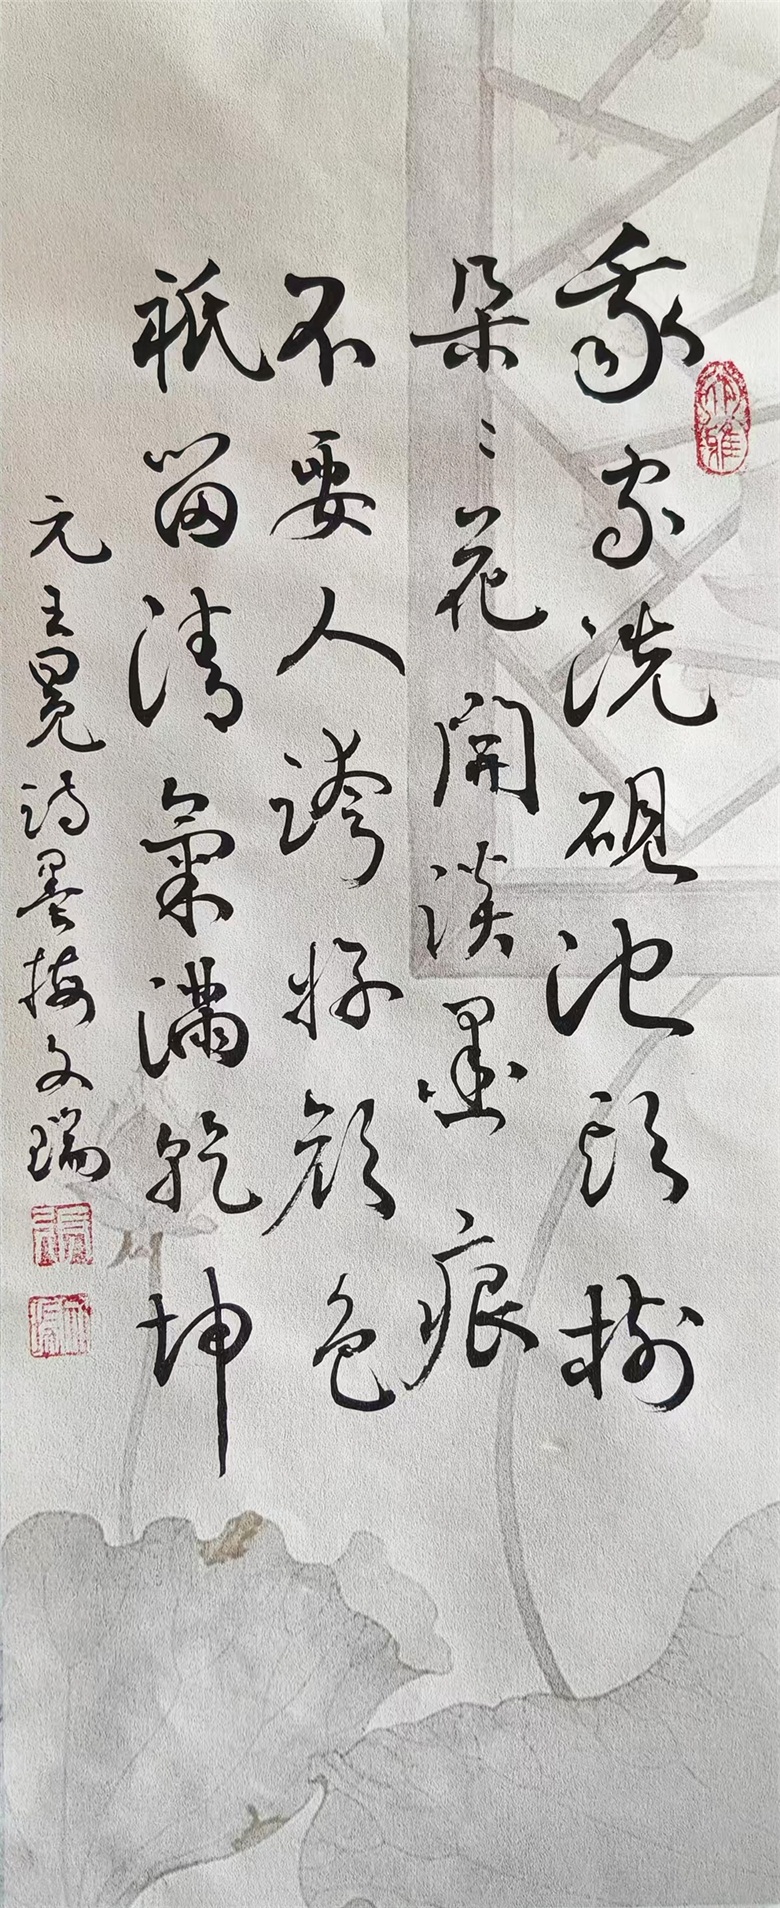 我家洗硯池頭樹
朵〻花開淡墨痕
不要人誇好顏色
祇留清氣滿乾坤
元王冕詩墨梅文瑞